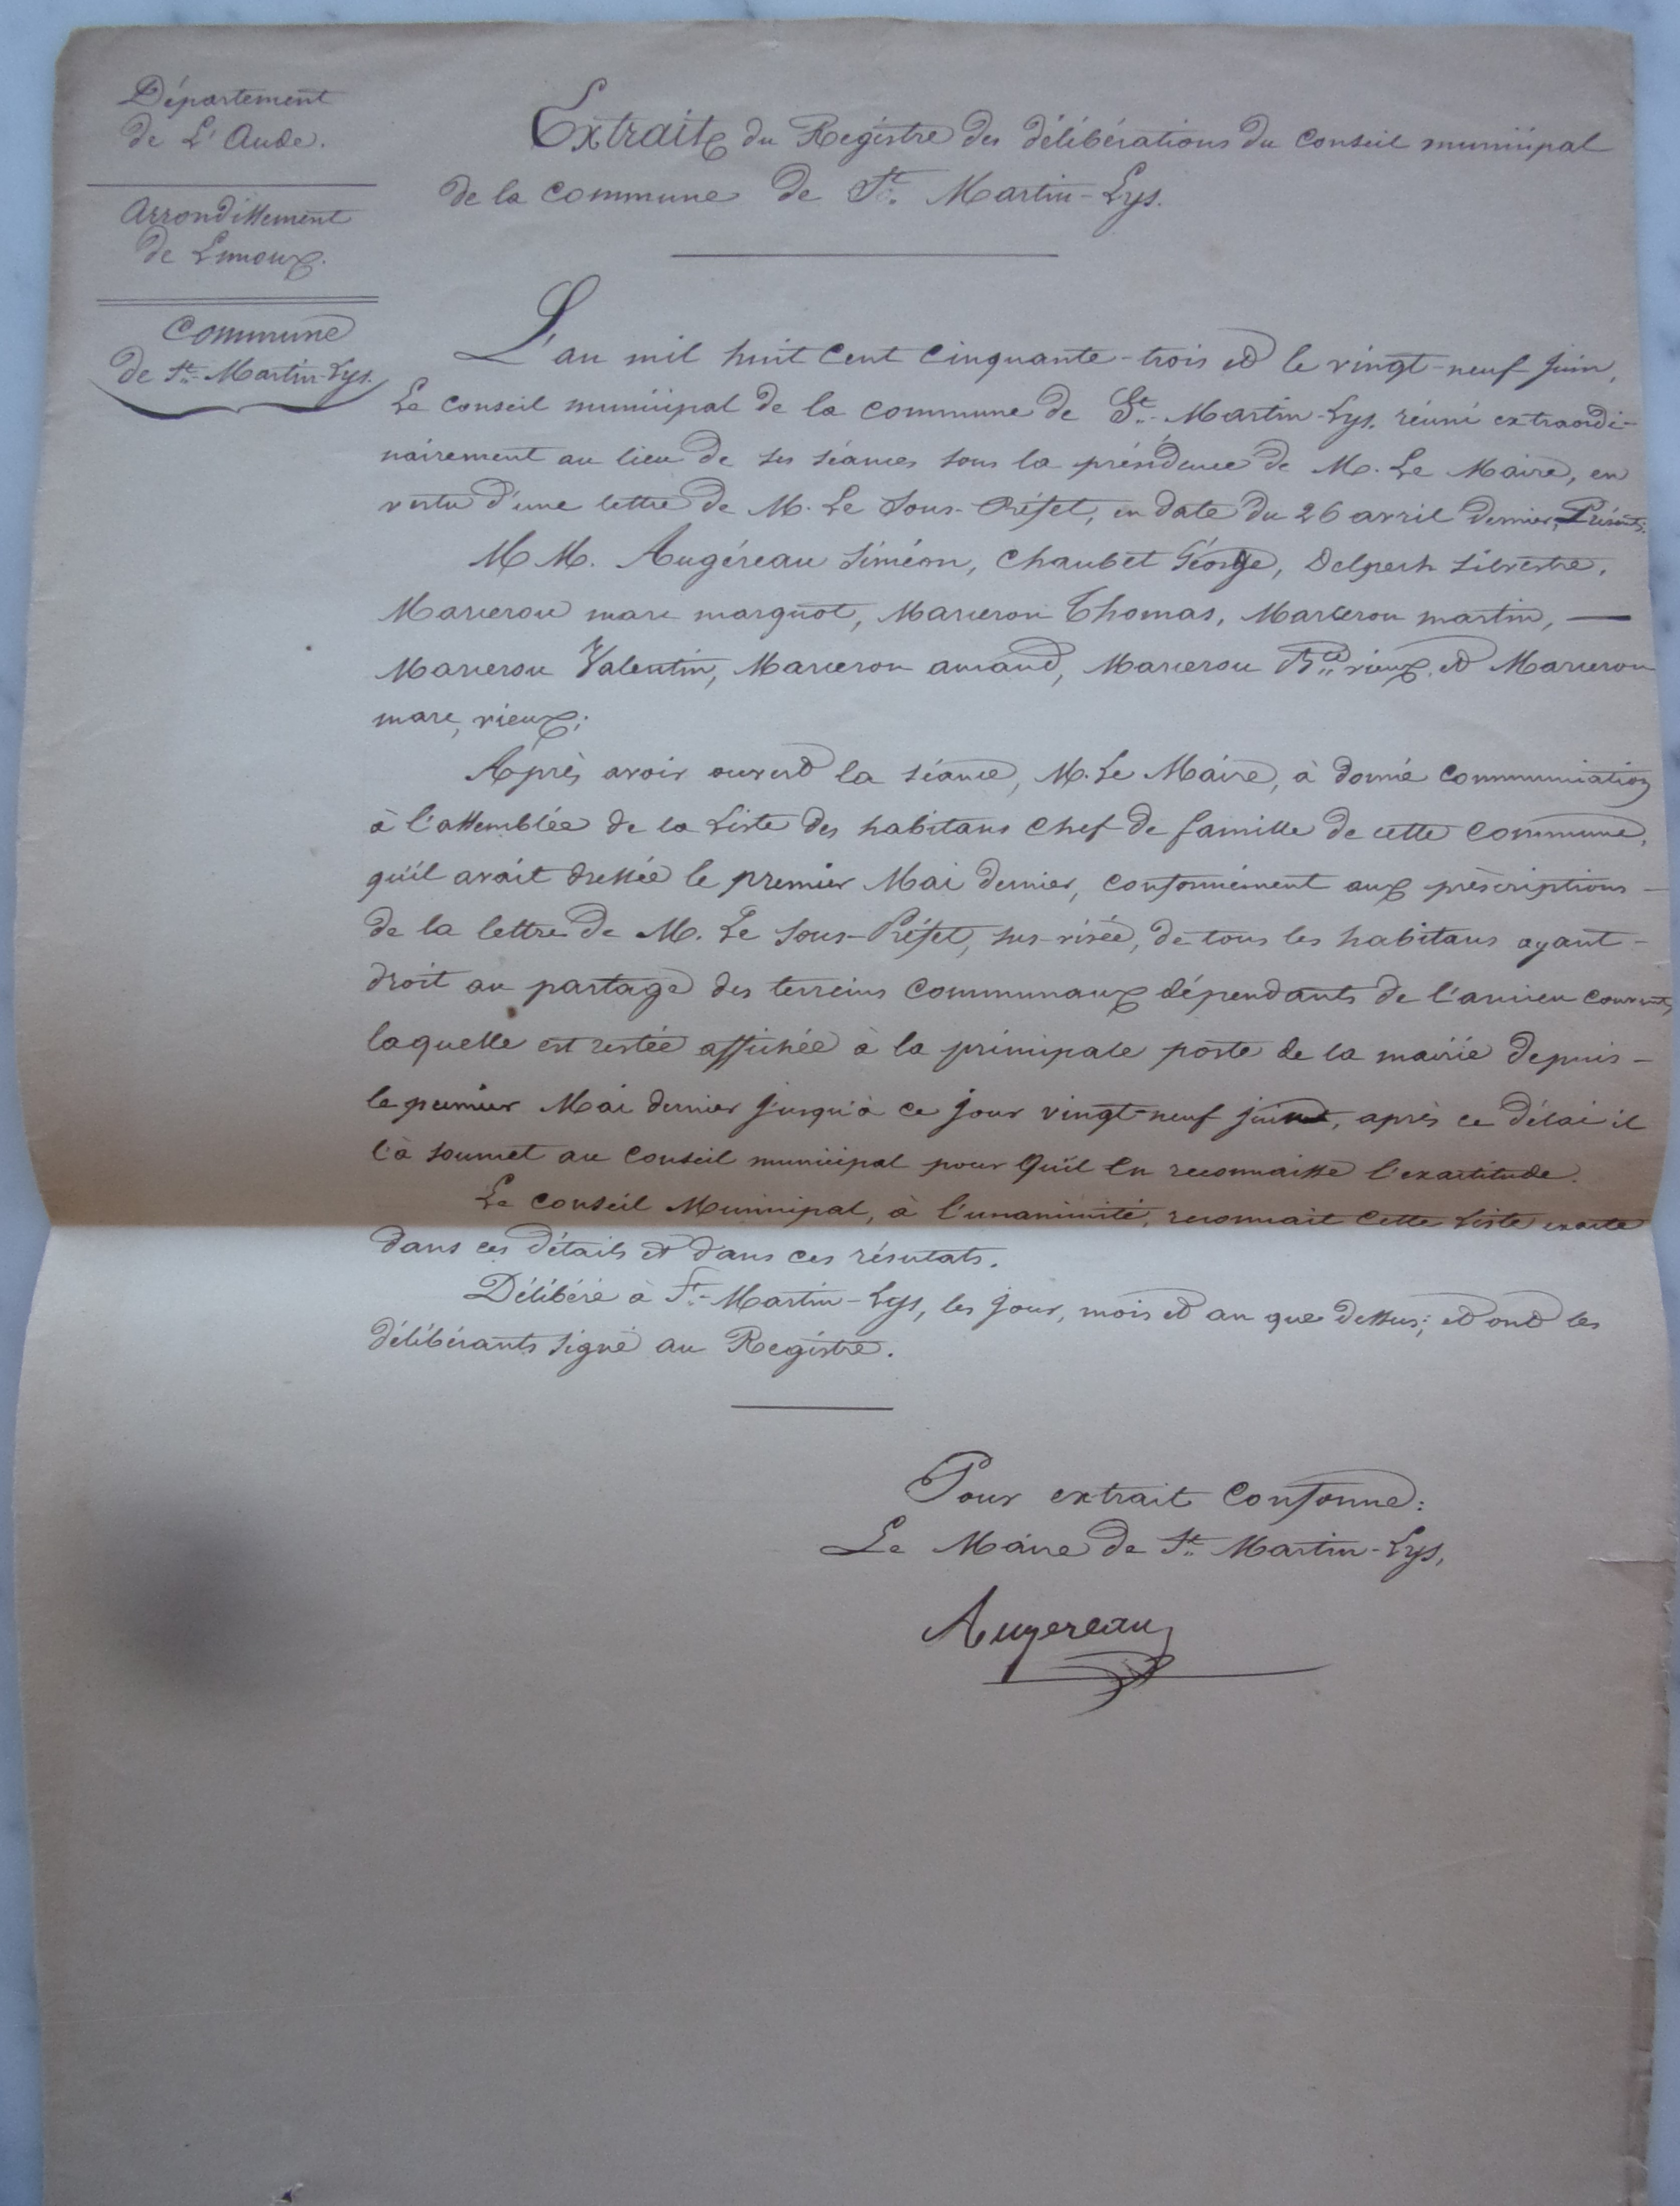 Département
de L'Aude.
Arrondissement
de Limoux.
Commune
de St. Martin-Lys.
Extrait du Registre des délibérations du Conseil municipal
de la commune de St. Martin-Lys.
L'an mil huit cent cinquante-trois et le vingt-neuf juin,
Le conseil municipal de la commune de St. Martin-Lys. réuni extraordi-
nairement au lieu de ses séances sous la présidence de M. Le Maire, en
vertu d'une lettre de M. Le Sous-Préfet, en date du 26 avril dernier, Présents:
M M. Augéreau Siméon, Chaubet George, Delpech Silvestre,
Marcerou marc marquot, Marcerou Thomas, Marcerou martin, —
Marcerou Valentin, Marcerou amand, Marcerou Bd. vieux, et Marcerou
marc, vieux;
Après avoir ouvert la séance, M. Le Maire, à donné communication
à l'assemblée de la Liste des habitans chef de famille de cette commune,
qu'il avait dressée le premier Mai dernier, conformément aux prèscriptions -
de la lettre de M. Le Sous-Préfet, sus-visée, de tous les habitans ayant -
droit au partage des terreins communaux dépendants de l'ancien couvent,
laquelle est restée affichée à la principale porte de la mairie depuis -
le premier Mai dernier jusqu'à ce jour vingt-neuf juin, après ce délai il
l'à soumet au Conseil municipal pour qu'il en reconnaisse l'exactitude.
Le conseil Municipal, à l'unanimité, reconnait cette Liste exacte
dans ces détails et dans ces résutats.
Délibéré à St.-Martin-Lys, les jour, mois et an que dessus; et ont les
délibérants signé au Registre.
Pour extrait conforme:
Le Maire de St. Martin-Lys,
Augereau